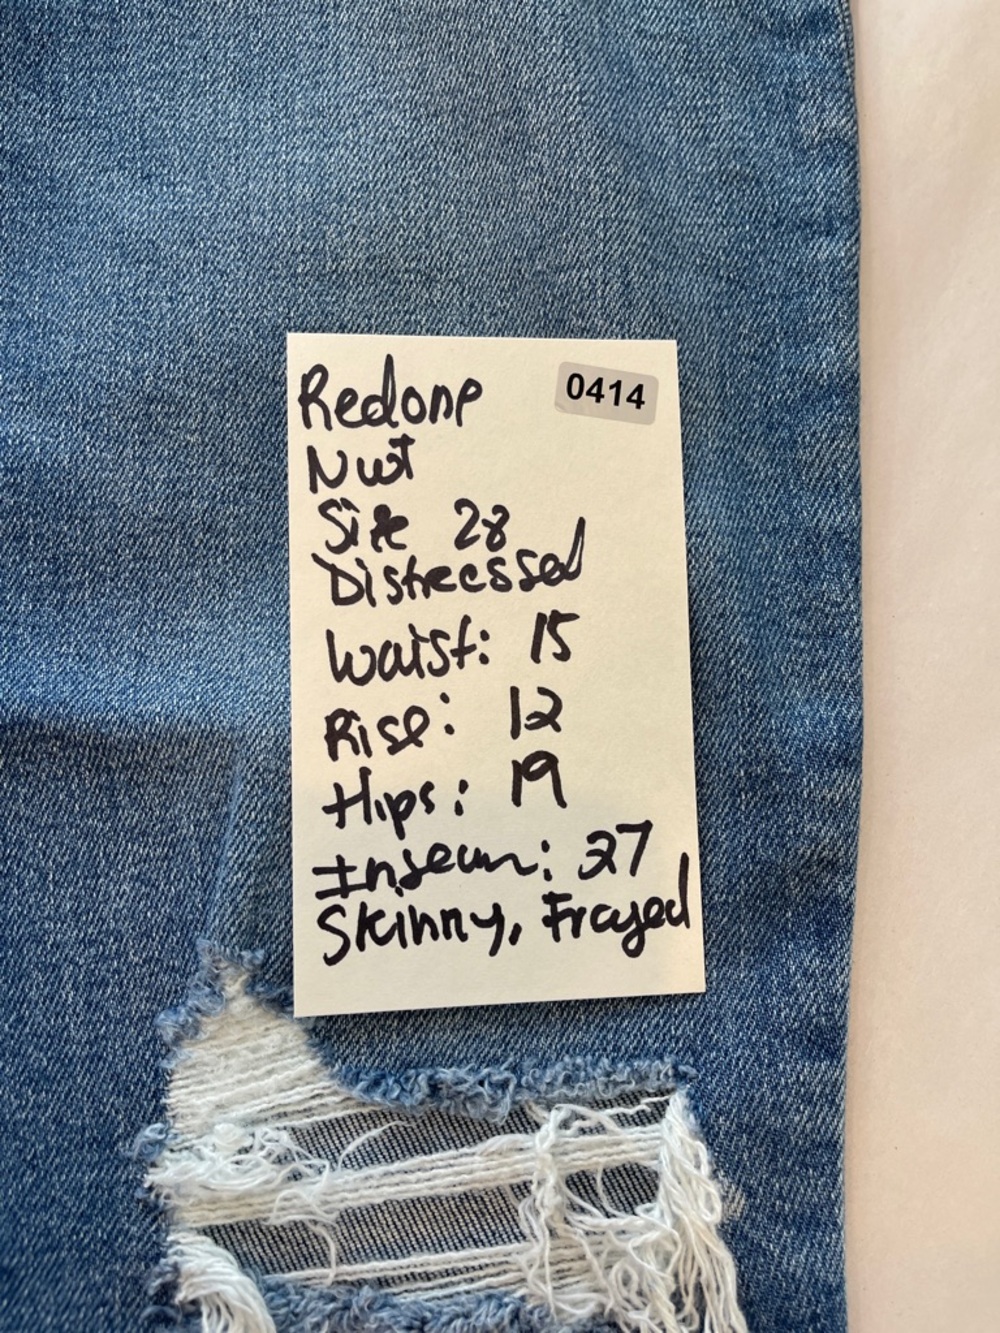 Redone
0414
Nwt
Size 28
Distressed
Waist: 15
Rise: 12
Hips: 19
Inseam: 27
Skinny, Frayed